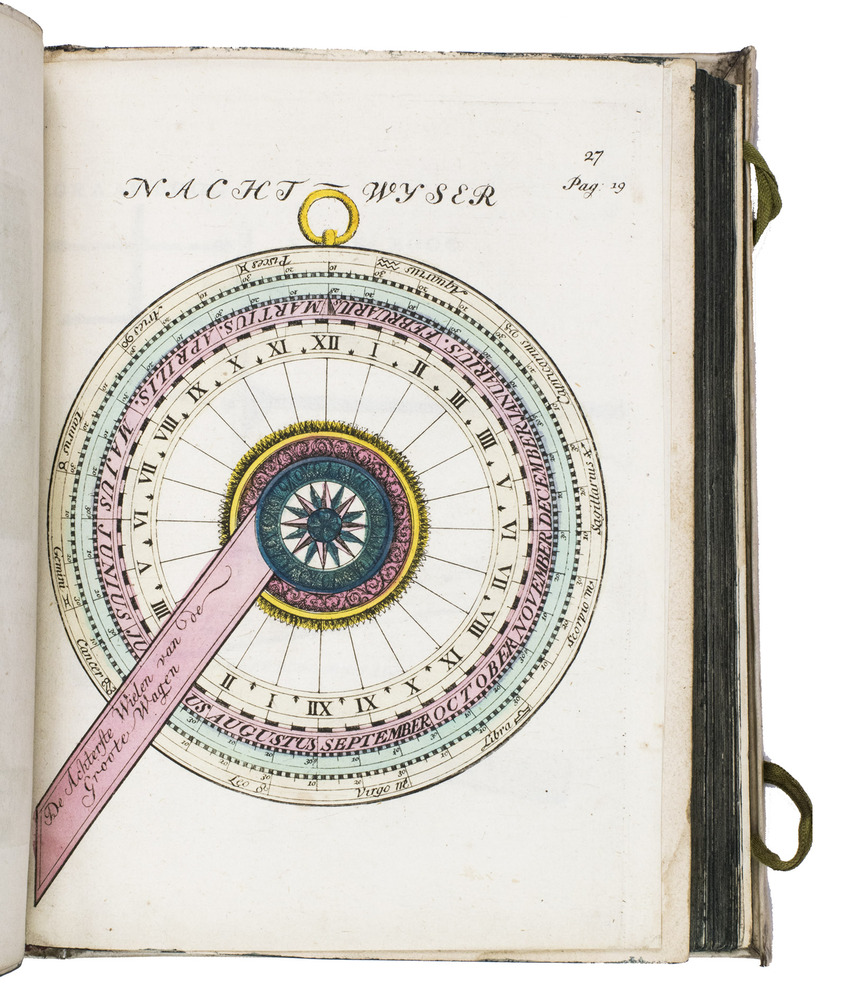 27
Pag: 19
NACHT-WYSER
Pisces ♓ ♒ Aquarius
Aries
Capricornus
Taurus ♉
Sagittarius
Gemini ♊
Scorpio ♏
Cancer ♋
Libra
Leo ♌
Virgo ♍
MARTIUS. APRILIS. MAJUS JUNIUS
AUGUSTUS SEPTEMBER OCTOBER NOVEMBER DECEMBER IANUARIUS. FEBRUARIUS
XII I II III IIII V VI VII VIII IX X XI XII I II
IIII V VI VII VIII IX X XI
De Achterste Wielen van de
Groote Wagen